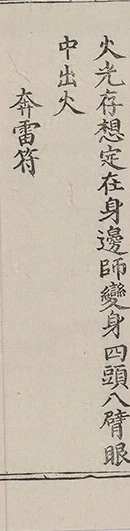 火光存想定在身邊師變身四頭八臂眼
中出火
奔雷符